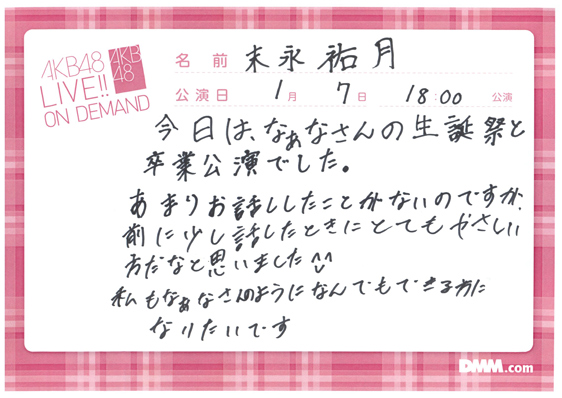 AKB48
LIVE!!
ON DEMAND
AKB
48
名前 末永祐月
公演日 1月 7日 18:00 公演
今日は、なぁなさんの生誕祭と
卒業公演でした。
あまりお話ししたことがないのですが、
前に少し話したときにとてもやさしい
方だなと思いました^^
私もなぁなさんのようになんでもできる方に
なりたいです
DMM.com